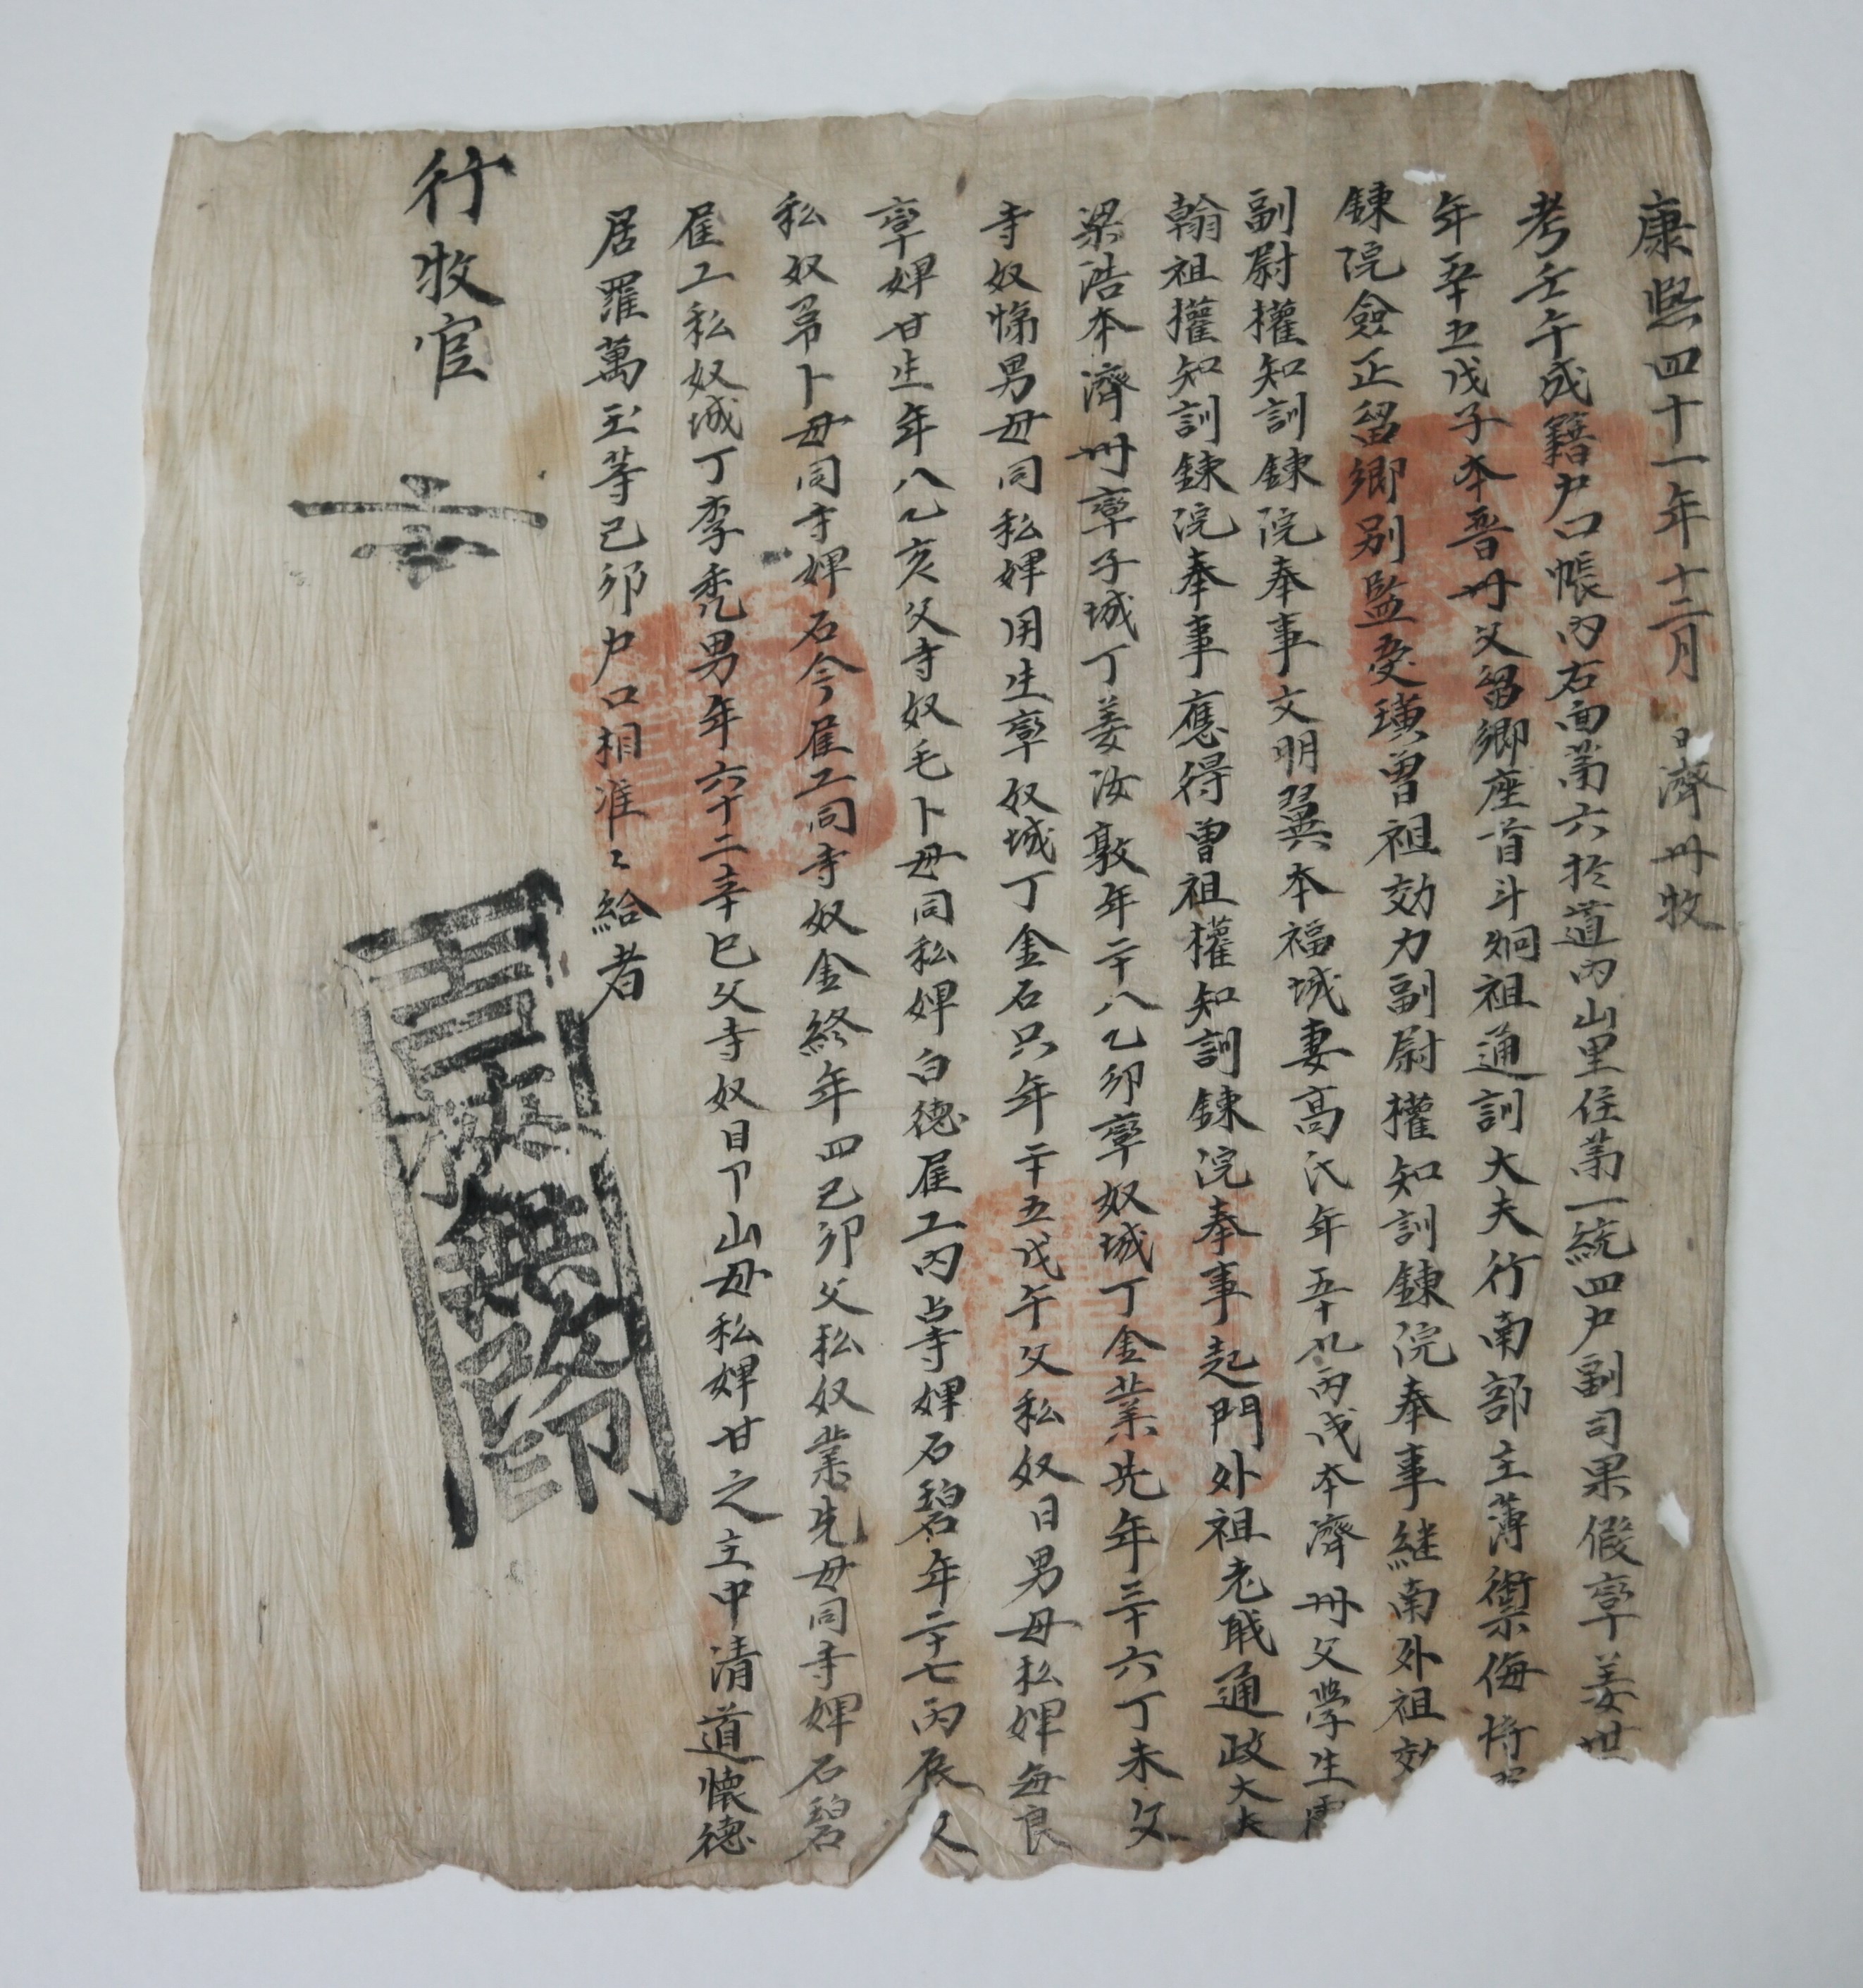 康熙四十一年十二月 日濟州牧
考壬午成籍户口帳內右面第六於道內山里住第一統四户副司果假率姜世
年五十五戊子本晋州父留鄉座首斗炯祖通訓大夫行南部主薄禦侮將
鍊院僉正留鄉別監受璜曾祖効力副尉權知訓鍊院奉事継南外祖効
副尉權知訓鍊院奉事文明翼本福城妻高氏年五十九丙戌本濟州父學生
翰祖權知訓鍊院奉事應得曾祖權知訓鍊院奉事起門外祖老戝通政大夫
梁浩本濟州率子城丁姜汝敦年二十八乙卯率奴城丁金業先年三十六丁未父
寺奴悌男母同私婢用生率奴城丁金石只年二十五戊午父私奴日男母私婢每良
率婢甘生年八乙亥父寺奴毛卜母同私婢白德雇工丙占寺婢石碧年二十七丙辰父
私奴弟卜母同寺婢石今雇工同寺奴金終年四己卯父私奴業先母同寺婢石碧
雇工私奴城丁李禿男年六十二辛巳父寺奴日下山母私婢甘之主中清道懷德
居羅萬玉等己卯户口相准々給者
行牧官
周挾無改印